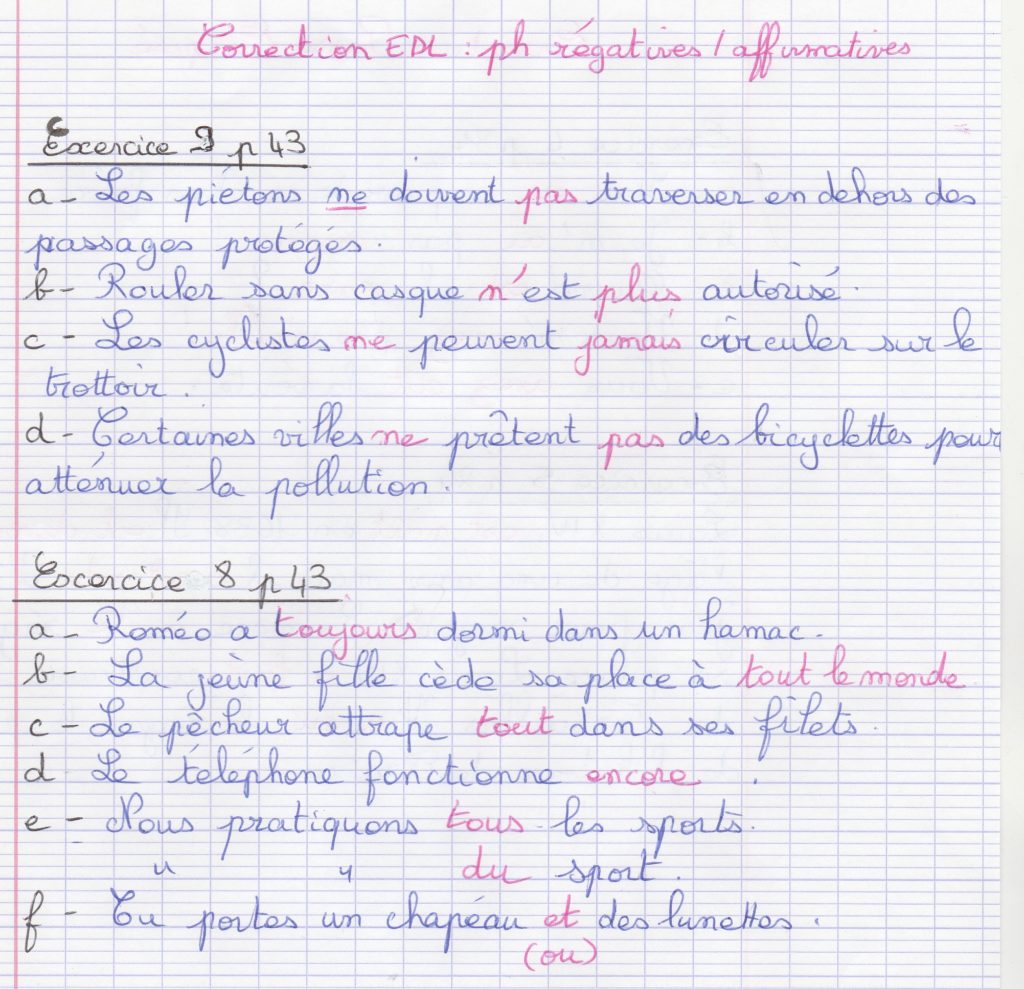 Correction EDL : ph négatives / affirmatives
Exercice 9 p 43
a - Les piétons ne doivent pas traverser en dehors des
passages protégés.
b - Rouler sans casque n'est plus autorisé.
c - Les cyclistes ne peuvent jamais circuler sur le
trottoir.
d - Certaines villes ne prêtent pas des bicyclettes pour
atténuer la pollution.
Exercice 8 p 43
a - Roméo a toujours dormi dans un hamac.
b - La jeune fille cède sa place à tout le monde
c - Le pêcheur attrape tout dans ses filets.
d Le téléphone fonctionne encore .
e - Nous pratiquons tous les sports.
" " du sport.
f - Tu portes un chapeau et des lunettes.
(ou)